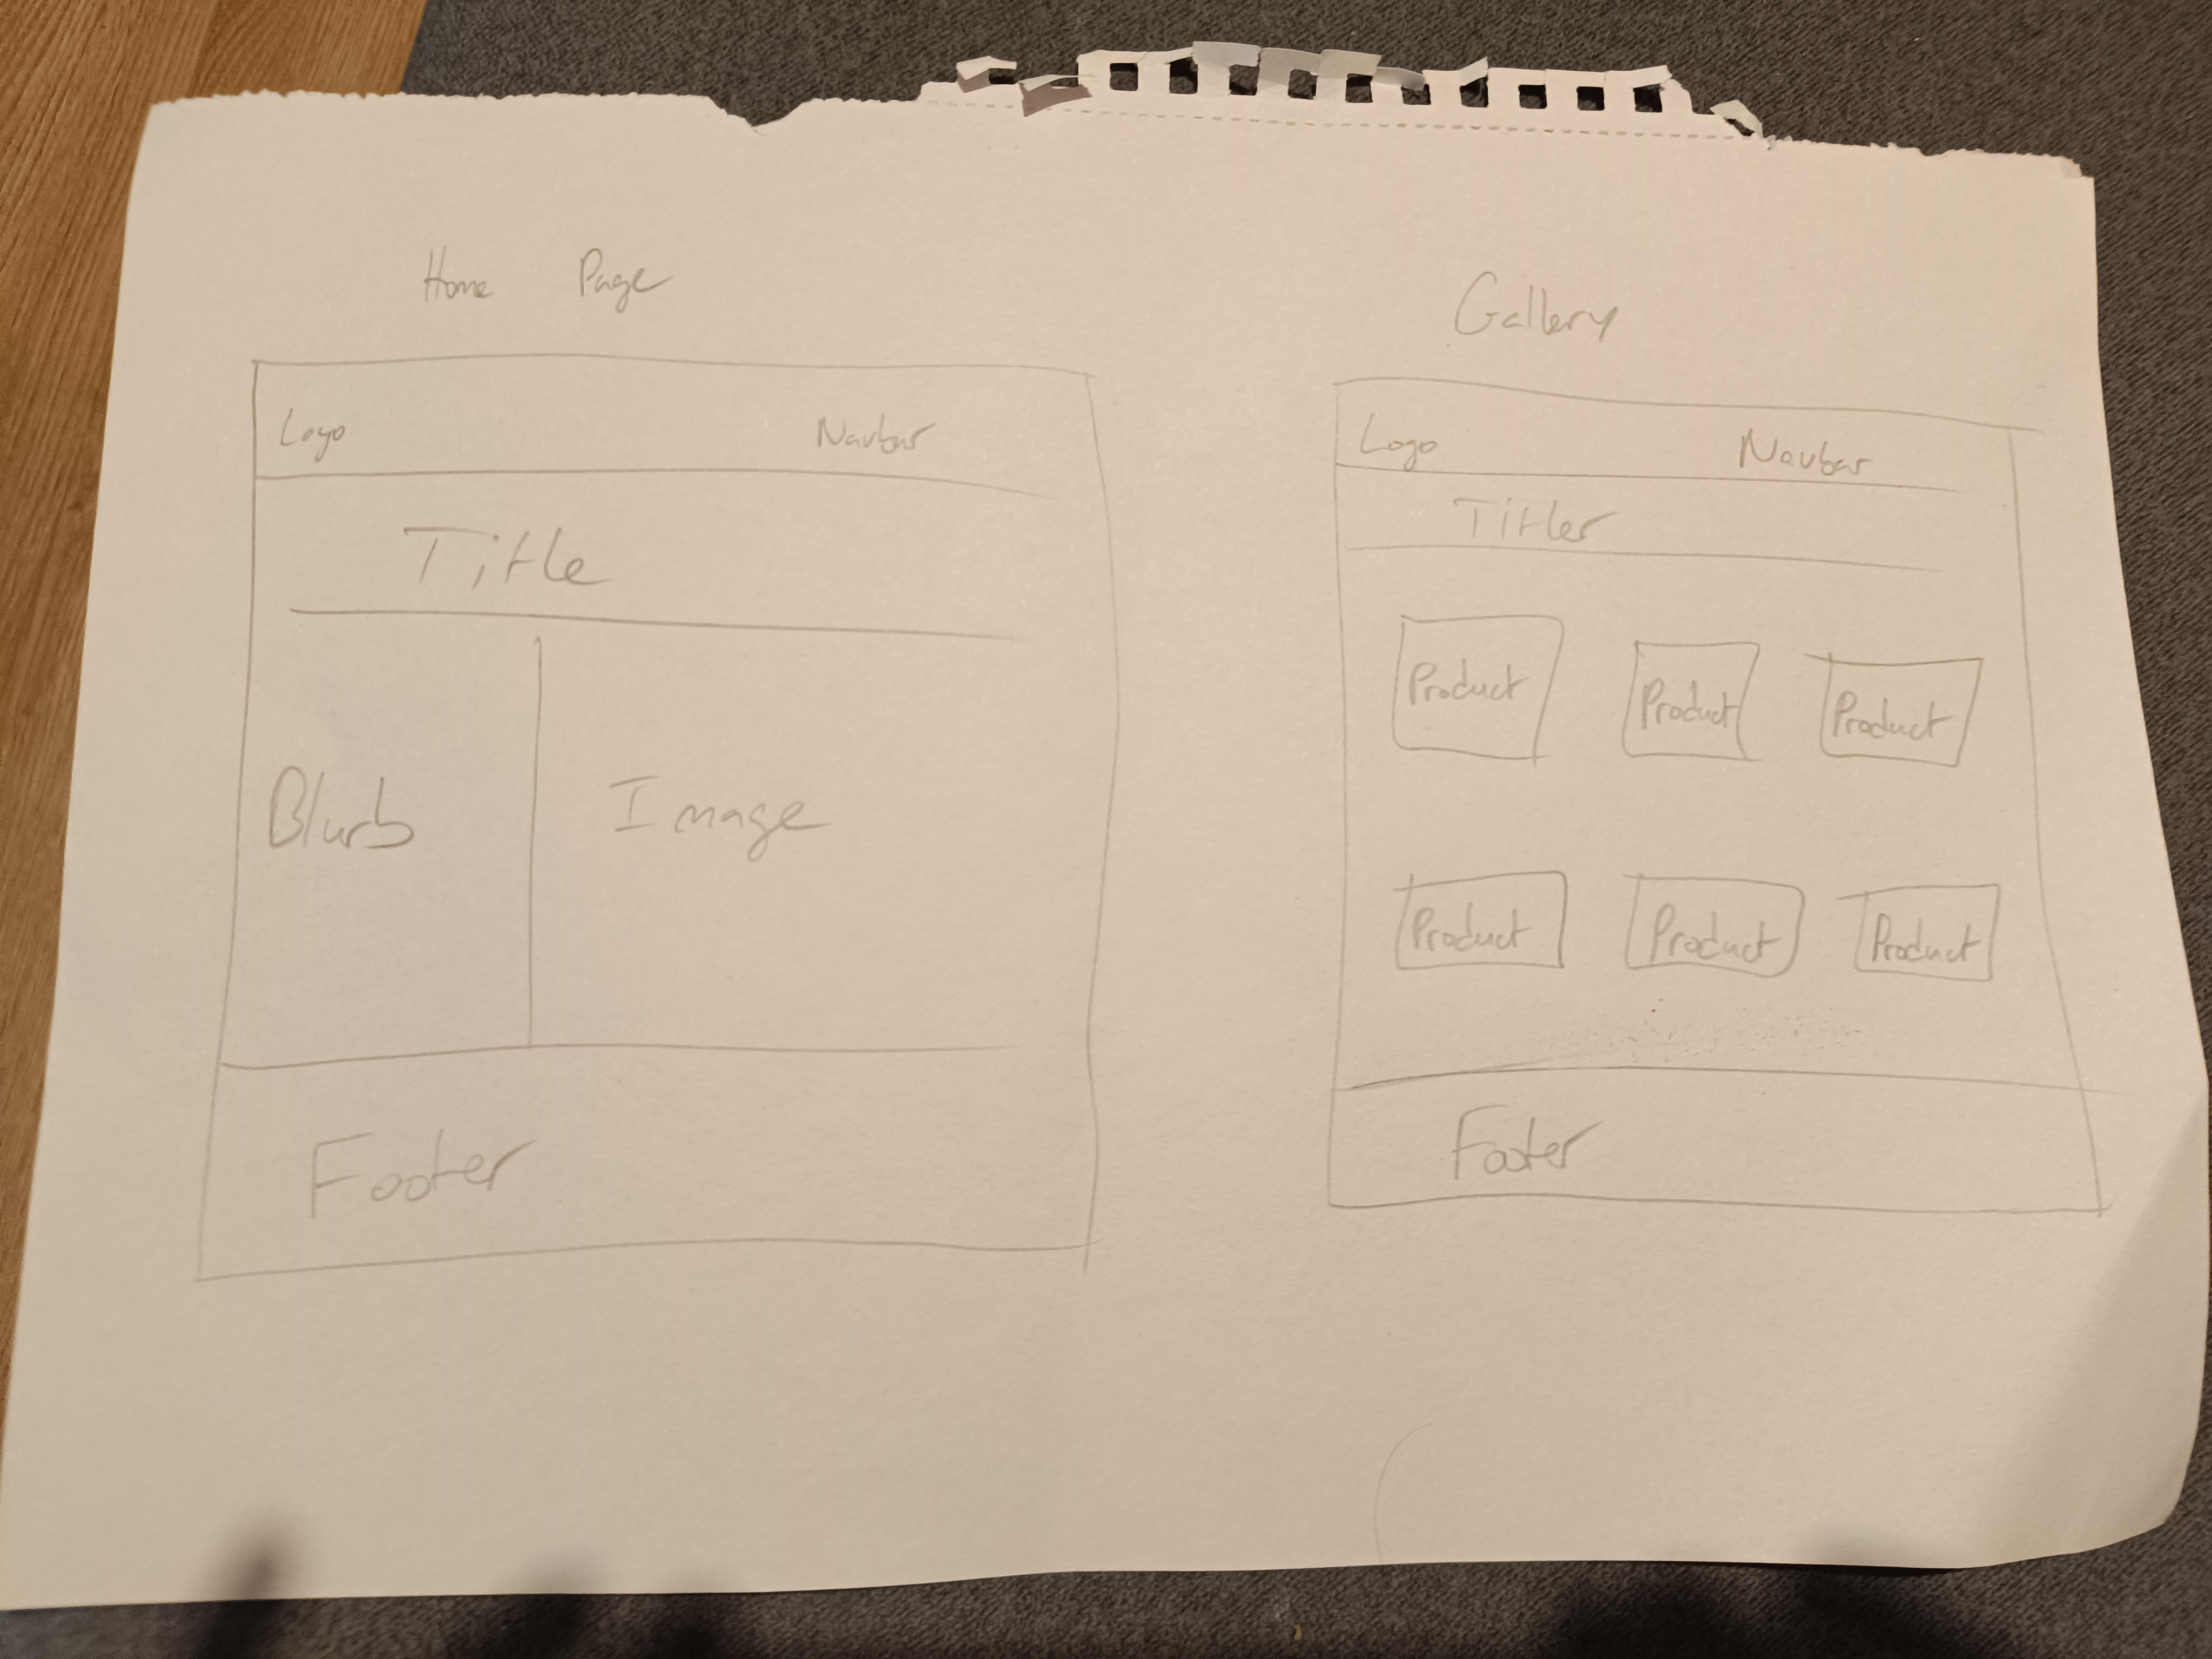 Home Page
Logo Navbar
Title
Blurb Image
Footer
Gallery
Logo Navbar
Titler
Product Product Product
Product Product Product
Footer